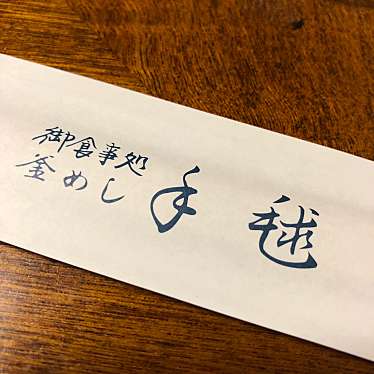 御食事処
釜めし
手毬